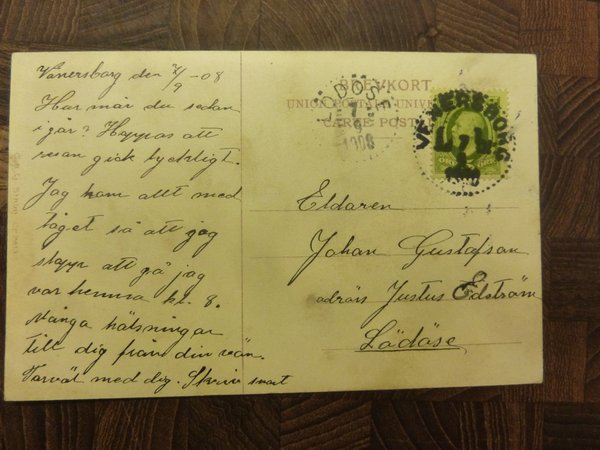 Vänersborg den 7/9 -08
Hur mår du sedan
i går? Hoppas att
resan gick lyckligt.
Jag kom allt med
tåget så att jag
slapp att gå jag
var hemma kl. 8.
Många hälsningar
till dig från din vän.
Farväl med dig. Skriv snart
BREVKORT
UNION POSTALE UNIV
CARTE POST
1908
VENERSBORG
Eldaren
Johan Gustafson
adräs Justus Edström
Lödöse